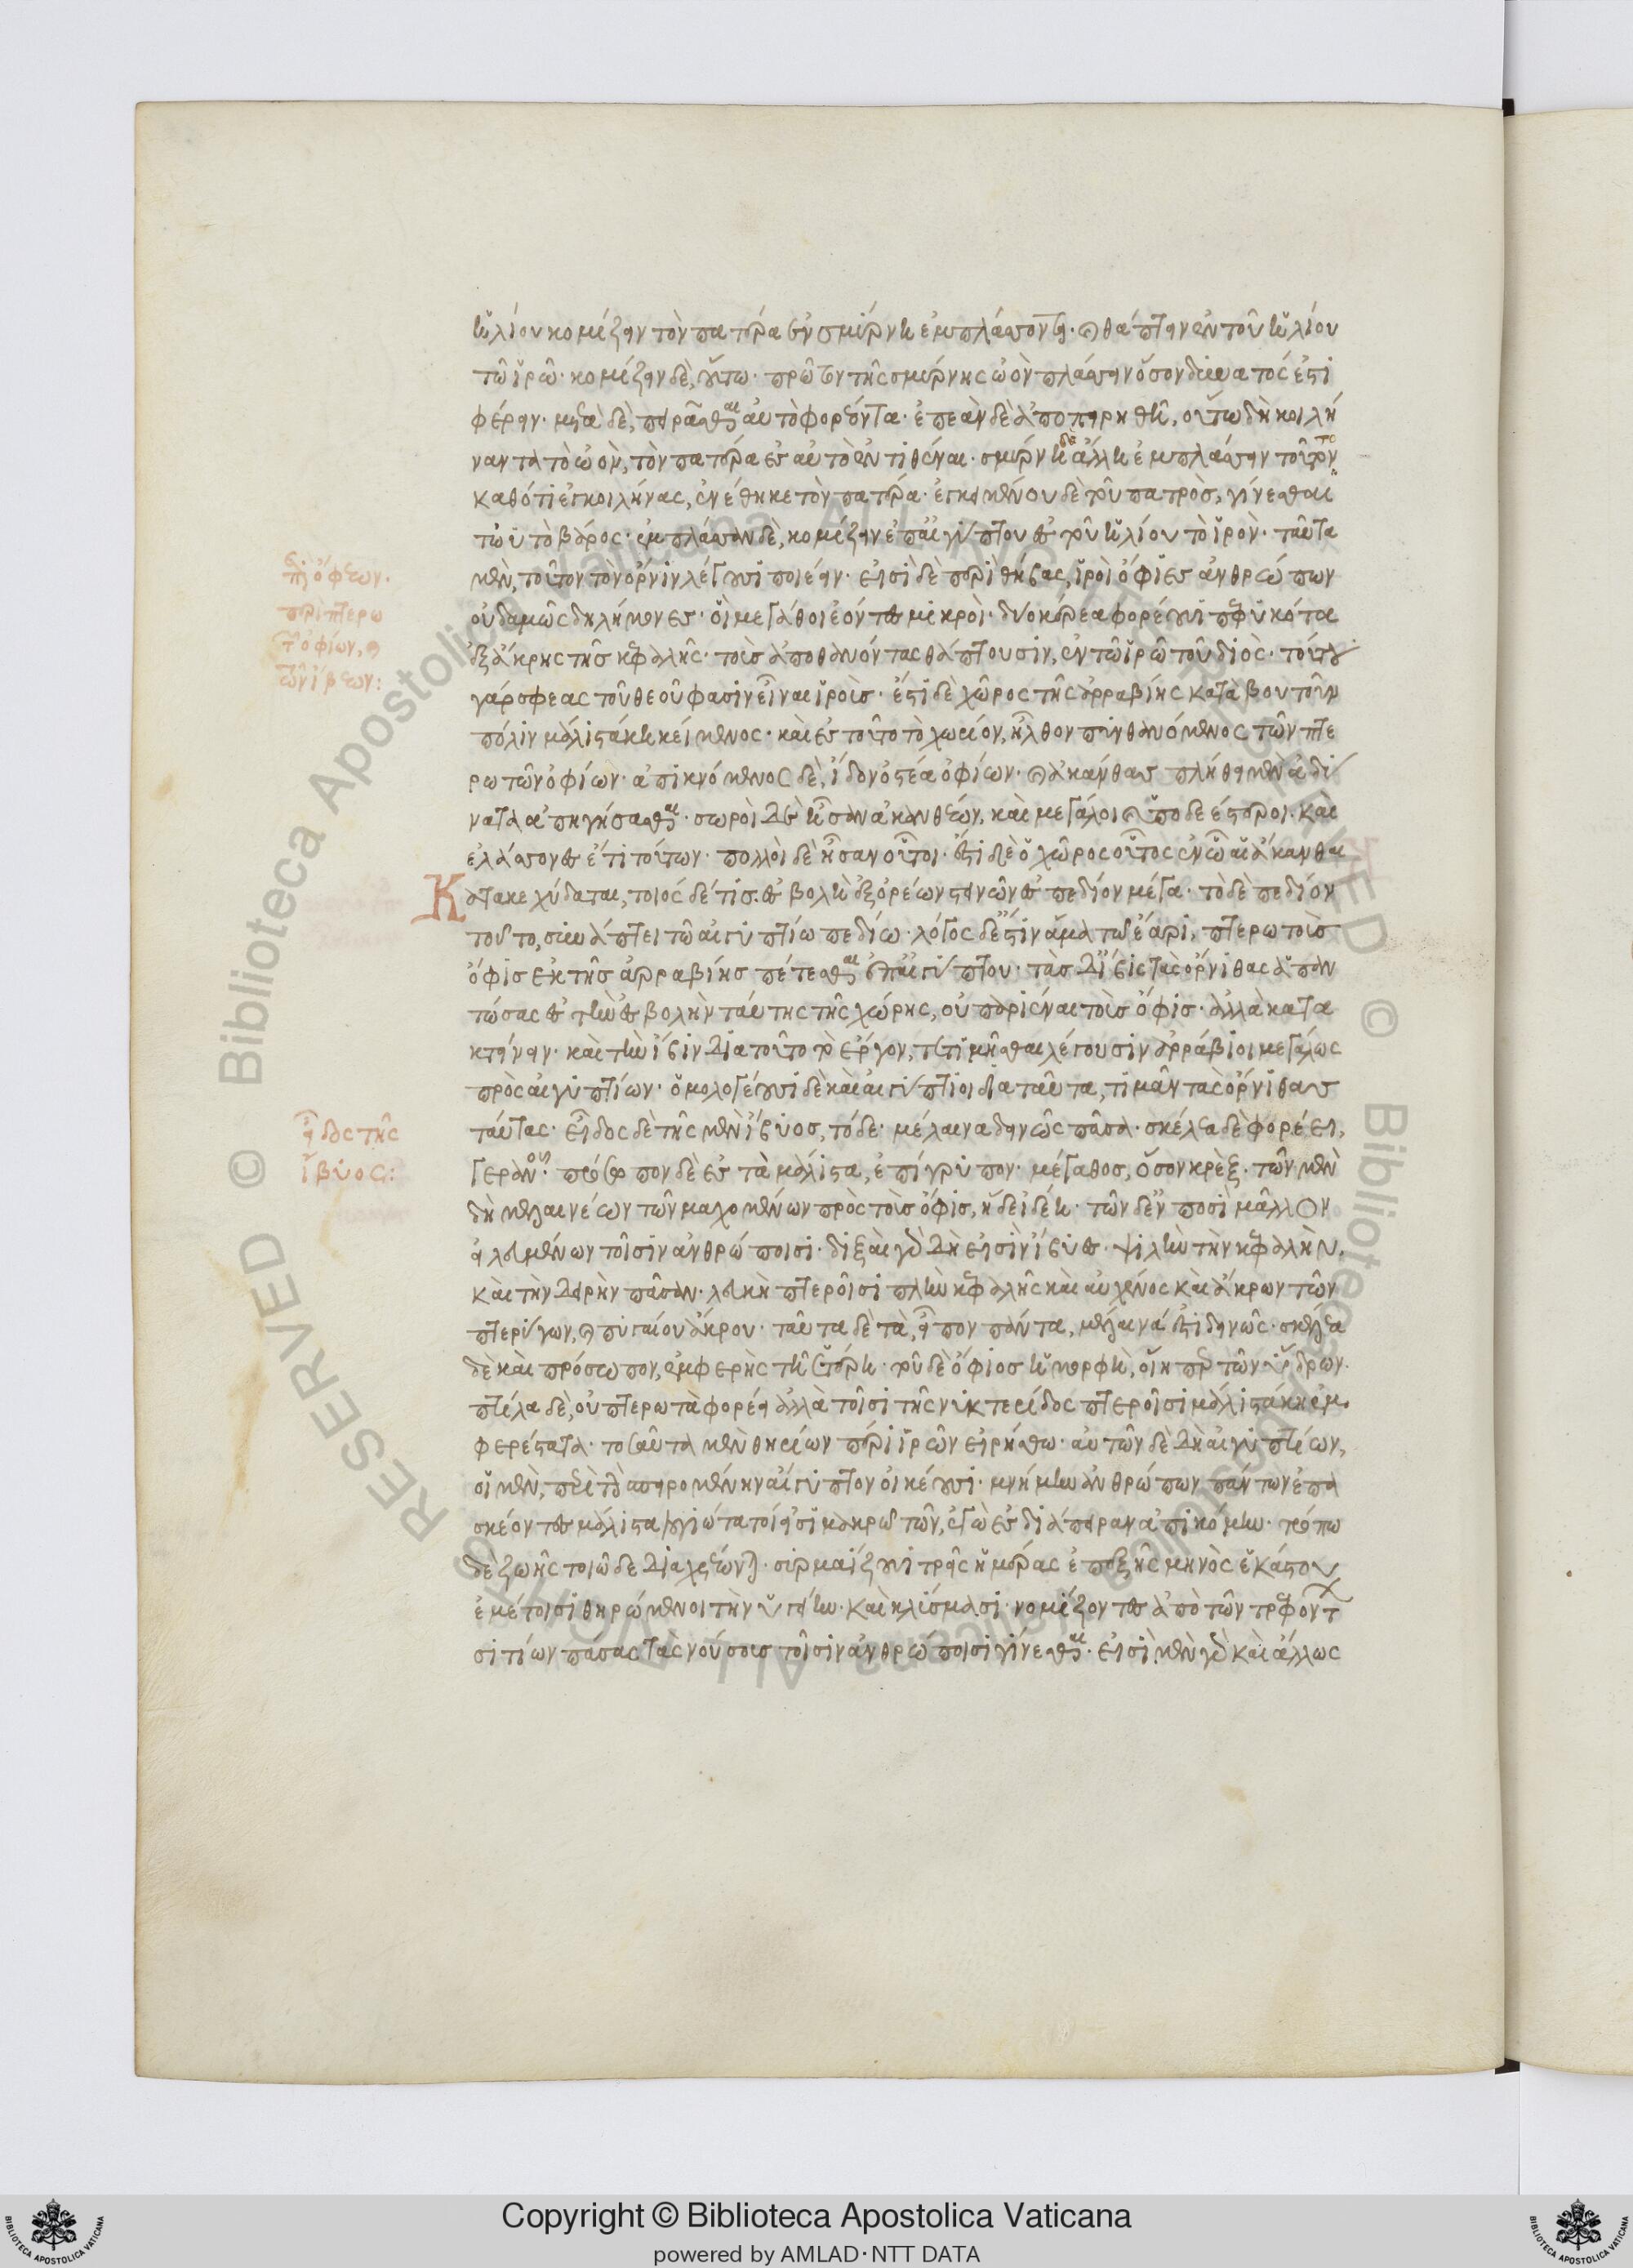 ἡλίου κομίζειν τὸν πατέρα ἐν σμύρνῃ ἐμπλάσσοντα· καὶ θάπτειν ἐν τοῦ ἡλίου
τῷ ἱρῷ· κομίζειν δὲ, οὕτω· πρῶτον τῆς σμύρνης ὠὸν πλάσσειν ὅσον δυνατός ἐστι
φέρειν· μετὰ δὲ, πειρᾶσθαι αὐτὸ φορέοντα· ἐπεὰν δὲ ἀποπειρηθῇ, οὕτω δὴ κοιλή
ναντα τὸ ὠὸν, τὸν πατέρα ἐς αὐτὸ ἐντιθέναι· σμύρνῃ δὲ ἄλλῃ ἐμπλάσσειν τοῦτο
καθότι ἐγκοιλήνας, ἐνέθηκε τὸν πατέρα· ἐγκειμένου δὲ τοῦ πατρὸς, γίνεσθαι
τὠυτὸ βάρος· ἐμπλάσαντα δὲ, κομίζειν ἐπ' αἰγύπτου ἐς τοῦ ἡλίου τὸ ἱρὸν· ταῦτα
μὲν, τοῦτον τὸν ὄρνιν λέγουσι ποιέειν· εἰσὶ δὲ περὶ θήβας, ἱροὶ ὄφιες ἀνθρώπων
οὐδαμῶς δηλήμονες· οἳ μεγάθοϊ ἐόντες μικροὶ· δύο κέρεα φορέουσι πεφυκότα
ἐξ ἄκρης τῆς κεφαλῆς· τοὺς ἀποθανόντας θάπτουσιν, ἐν τῷ ἱρῷ τοῦ διὸς· τούτου
γάρ σφεας τοῦ θεοῦ φασιν εἶναι ἱροὺς· ἔστι δὲ χῶρος τῆς ἀρραβίης κατὰ βουτοῦν
πόλιν μάλιστά κῃ κείμενος· καὶ ἐς τοῦτο τὸ χωρίον, ἦλθον πυνθανόμενος τῶν πτε
ρωτῶν ὀφίων· ἀπικνόμενος δὲ, ἴδον ὀστέα ὀφίων· καὶ ἀκάνθας πλήθει μὲν ἀδύ
νατα ἀπηγήσασθαι· σωροὶ δὲ ἦσαν ἀκανθέων, καὶ μεγάλοι καὶ ὑποδεέστεροι· καὶ
ἐλάσσονες ἔτι τούτων· πολλοὶ δὲ ἦσαν οὗτοι· ἔστι δὲ ὁ χῶρος οὗτος ἐν ᾧ αἱ ἄκανθαι
κατακεχύδαται, τοιόσδέ τις· ἐσβολὴ ἐξ ὀρέων στεινῶν ἐς πεδίον μέγα· τὸ δὲ πεδίον
τοῦτο, συνάπτει τῷ αἰγυπτίῳ πεδίῳ· λόγος δέ ἐστιν ἅμα τῷ ἔαρι, πτερωτοὺς
ὄφις ἐκ τῆς ἀρραβίης πέτεσθαι ἐπ' αἰγύπτου· τὰς δὲ ἴβις τὰς ὄρνιθας ἀπαν
τώσας ἐς τὴν ἐσβολὴν ταύτης τῆς χώρης, οὐ παριέναι τοὺς ὄφις· ἀλλὰ κατα
κτείνειν· καὶ τὴν ἴβιν διὰ τοῦτο τὸ ἔργον, τετιμῆσθαι λέγουσιν ἀρράβιοι μεγάλως
πρὸς αἰγυπτίων· ὁμολογέουσι δὲ καὶ αἰγύπτιοι διὰ ταῦτα, τιμᾶν τὰς ὄρνιθας
ταύτας· εἶδος δὲ τῆς μὲν ἴβυος, τόδε· μέλαινα δεινῶς πᾶσα· σκέλεα δὲ φορέει,
γεράνου· πρόσωπον δὲ ἐς τὰ μάλιστα, ἐπίγρυπον· μέγαθος, ὅσον κρὲξ· τῶν μὲν
δὴ μελαινέων τῶν μαχομένων πρὸς τοὺς ὄφις, ἥδε ἰδέη· τῶν δ' ἐν ποσὶ μᾶλλον
εἰλευμένων τοῖσιν ἀνθρώποισι· διξαὶ γὰρ δὴ εἰσὶν ἴβυες· ψιλὴ τὴν κεφαλὴν,
καὶ τὴν δειρὴν πᾶσαν· λευκὴ πτεροῖσι πλὴν κεφαλῆς καὶ αὐχένος καὶ ἄκρων τῶν
πτερύγων, καὶ πυγαίου ἄκρου· ταῦτα δὲ τὰ, εἶπον πάντα, μέλαινά ἐστι δεινῶς· σκέλεα
δὲ καὶ πρόσωπον, ἐμφερὴς τῇ ἑτέρῃ· τοῦ δὲ ὄφιος ἡ μορφὴ, οἵη περ τῶν ὕδρων·
πτίλα δὲ, οὐ πτερωτὰ φορέει ἀλλὰ τοῖσι τῆς νυκτερίδος πτεροῖσι μάλιστά κῃ ἐμ
φερέστατα· τοσαῦτα μὲν θηρίων περὶ ἱρῶν εἰρήσθω· αὐτῶν δὲ δὴ αἰγυπτίων,
οἳ μὲν, περὶ τὴν σπειρομένην αἴγυπτον οἰκέουσι· μνήμην ἀνθρώπων πάντων ἐπα
σκέοντες μάλιστα, λογιώτατοί εἰσι μακρῷ τῶν, ἐγὼ ἐς διάπειραν ἀπικόμην· τρόπῳ
δὲ ζωῆς τοιῷδε διαχρέωνται· συρμαΐζουσι τρεῖς ἡμέρας ἐπεξῆς μηνὸς ἑκάστου
ἐμέτοισι θηρώμενοι τὴν ὑγείην· καὶ κλύσμασι· νομίζοντες ἀπὸ τῶν τρεφόντων
σιτίων πάσας τὰς νούσους τοῖσιν ἀνθρώποισι γίνεσθαι· εἰσὶ μὲν γὰρ καὶ ἄλλως
περὶ ὄφεων·
περὶ πτερω
τῶν ὀφίων, καὶ
τῶν ἰβέων:
εἶδος τῆς
ἴβυος:
Copyright © Biblioteca Apostolica Vaticana
powered by AMLAD·NTT DATA